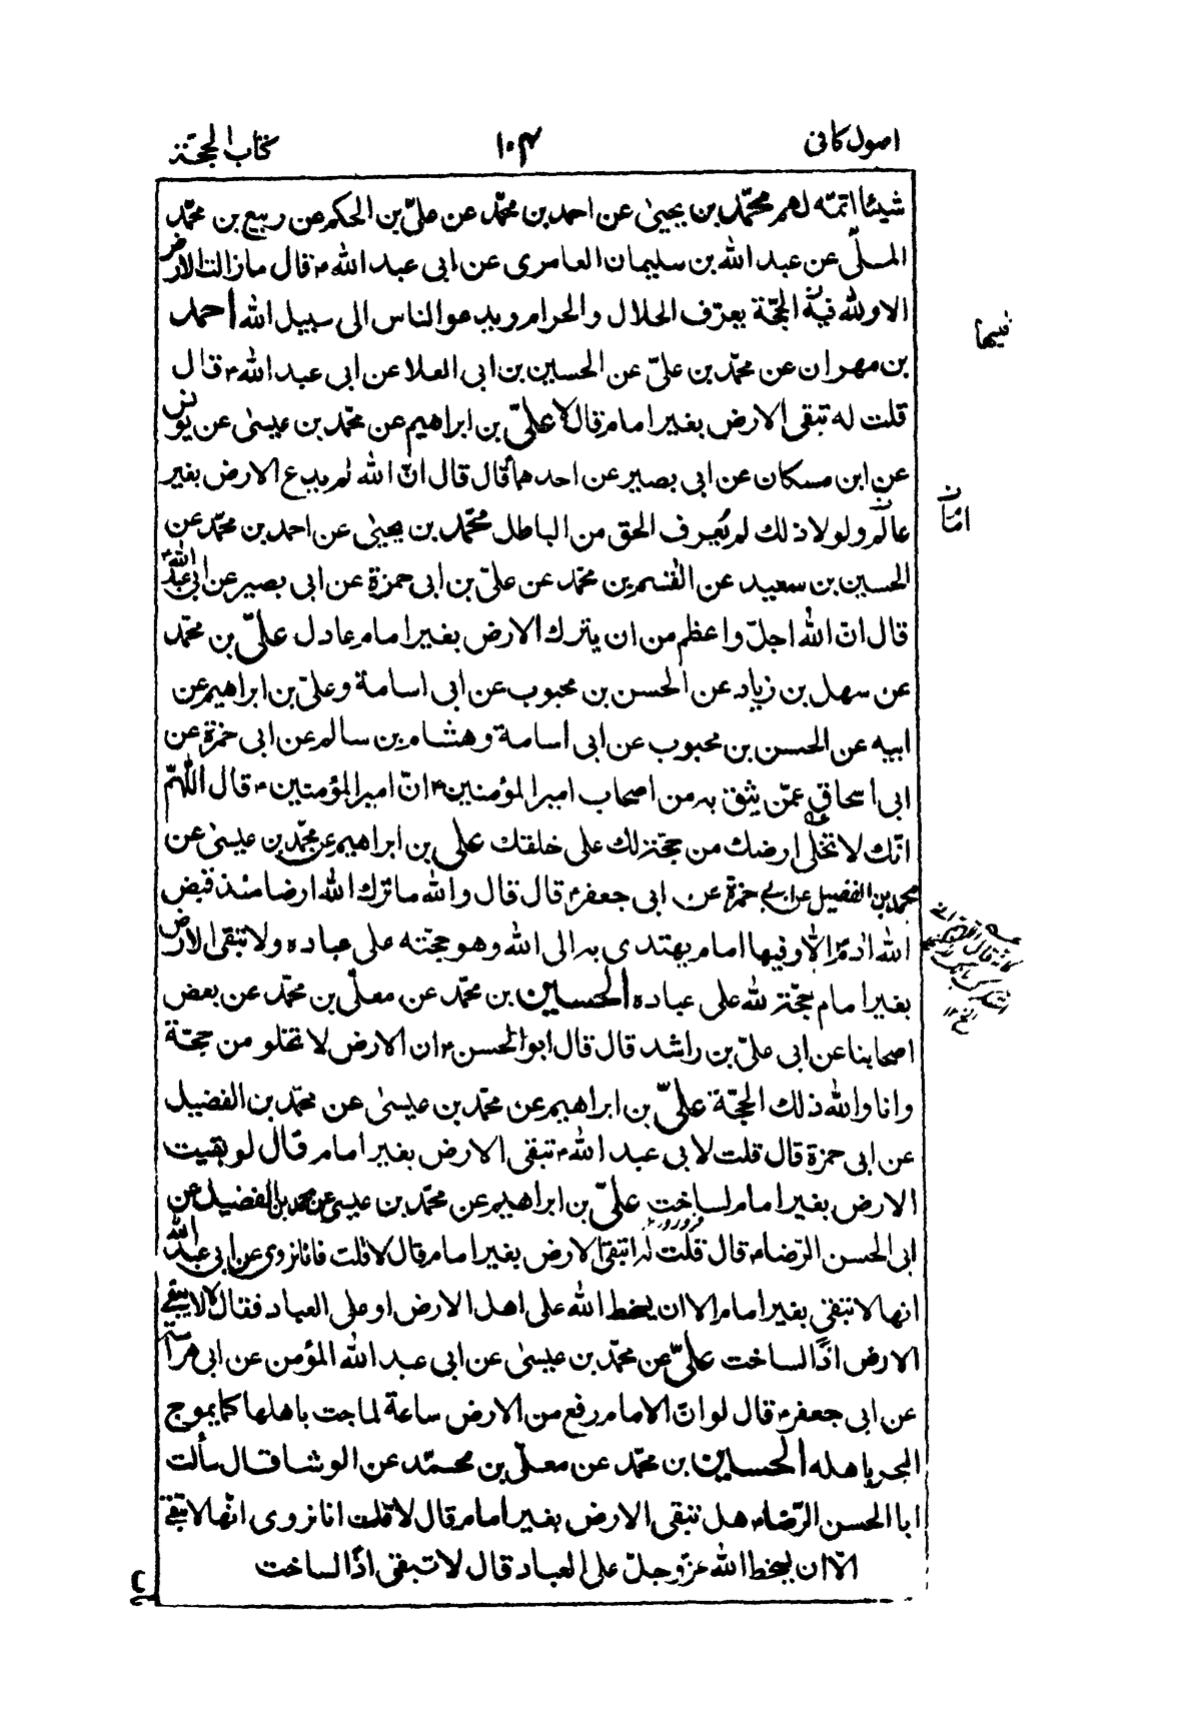 اصول کافی ۱۰۴ کتاب الحجّة
شیئا اتمّه لهم محمّد بن یحیىٰ عن احمد بن محمّد عن علیّ بن الحکم عن ربیع بن محمّد
المسلّی عن عبد الله بن سلیمان العامری عن ابی عبد الله ؑ قال ما زالت الارض
الا ولله فیها الحجّة یعرّف الحلال والحرام ویدعو الناس الی سبیل الله احمد
فیها
بن مهران عن محمّد بن علیّ عن الحسین بن ابی العلا عن ابی عبد الله ؑ قال
قلت له تبقی الارض بغیر امام قال لا علیّ بن ابراهیم عن محمّد بن عیسیٰ عن یونس
عن ابن مسکان عن ابی بصیر عن احدهما ؑ قال قال انّ الله لم یدع الارض بغیر
عالم ولولا ذلك لم یُعرف الحق من الباطل محمّد بن یحیىٰ عن احمد بن محمّد عن
الحسین بن سعید عن القسم بن محمّد عن علیّ بن ابی حمزة عن ابی بصیر عن ابی عبد الله ؑ
قال انّ الله اجلّ واعظم من ان یترك الارض بغیر امام عادل علیّ بن محمّد
عن سهل بن زیاد عن الحسن بن محبوب عن ابی اسامة وعلیّ بن ابراهیم عن
ابیه عن الحسن بن محبوب عن ابی اسامة وهشام بن سالم عن ابی حمزة عن
ابی اسحاق عمّن یثق به من اصحاب امیر المؤمنین ؑ انّ امیر المؤمنین ؑ قال اللّهمّ
انّك لا تخلی ارضك من حجّة لك علی خلقك علی بن ابراهیم عن محمّد بن عیسیٰ عن
محمد بن الفضیل عن ابی حمزة عن ابی جعفر ؑ قال قال والله ما ترك الله ارضا منذ قبض
الله ادم ؑ الّا وفیها امام یهتدی به الی الله وهو حجّته علی عباده ولا تبقی الارض
بغیر امام حجّة لله علی عباده الحسین بن محمّد عن معلّی بن محمّد عن بعض
اصحابنا عن ابی علیّ بن راشد قال قال ابو الحسن ؑ ان الارض لا تخلو من حجّة
وانا والله ذلك الحجّة علیّ بن ابراهیم عن محمّد بن عیسیٰ عن محمّد بن الفضیل
عن ابی حمزة قال قلت لابی عبد الله ؑ تبقی الارض بغیر امام قال لو بقیت
الارض بغیر امام لساخت علیّ بن ابراهیم عن محمّد بن عیسیٰ عن محمد بن الفضیل عن
ابی الحسن الرّضا ؑ قال قلت له اتبقی الارض بغیر امام قال لا قلت فانا نروی عن ابی عبد الله
انها لا تبقی بغیر امام الا ان یسخط الله علی اهل الارض او علی العباد فقال لا لا تبقی
الارض اذًا لساخت علیّ عن محمّد بن عیسیٰ عن ابی عبد الله المؤمن عن ابی هراسة
عن ابی جعفر ؑ قال لو انّ الامام رفع من الارض ساعة لماجت باهلها کما یموج
البحر باهله الحسین بن محمّد عن معلّی بن محمّد عن الوشا قال سألت
ابا الحسن الرّضا ؑ هل تبقی الارض بغیر امام قال لا قلت انا نروی انّها لا تبقی
الّا ان یسخط الله عزّ وجلّ علی العباد قال لا تبقی اذًا لساخت